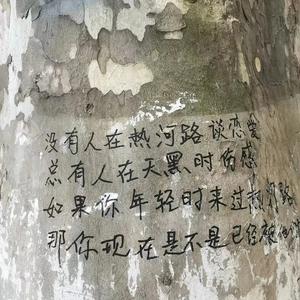 没有人在热河路谈恋爱
总有人在天黑时伤感
如果你年轻时来过热河路
那你现在是不是已经